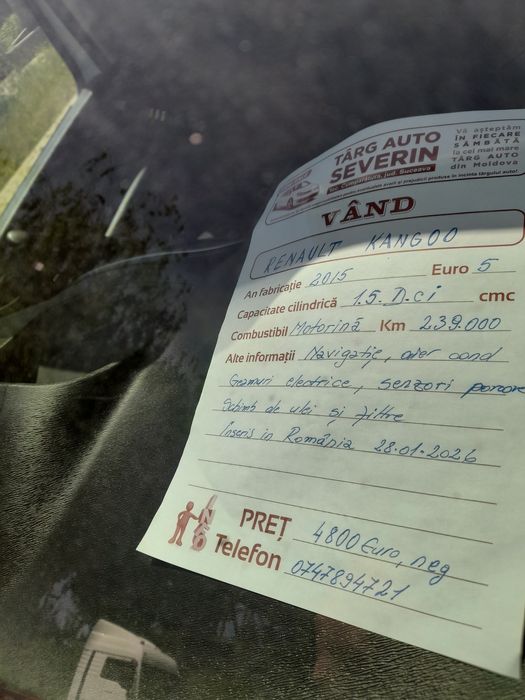 TÂRG AUTO
SEVERIN
loc. Cumpărătura, jud. Suceava
Vă așteptăm
ÎN FIECARE
SÂMBĂTĂ
la cel mai mare
TÂRG AUTO
din Moldova
VÂND
RENAULT KANGOO
An fabricație 2015 Euro 5
Capacitate cilindrică 1.5. D.ci cmc
Combustibil Motorină Km 239.000
Alte informații Navigație, aer cond
Geamuri electrice, senzori parcare
Schimb de ulei și filtre
Înscris in România 28.01.2026
PREȚ 4800 Euro, neg
Telefon 0747894721